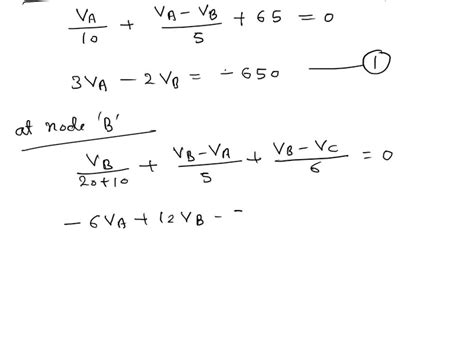 V_A/10 + (V_A – V_B)/5 + 65 = 0
3V_A – 2V_B = – 650 ——— ①
at node 'B'
V_B/(20+10) + (V_B – V_A)/5 + (V_B – V_C)/6 = 0
– 6V_A + 12V_B –